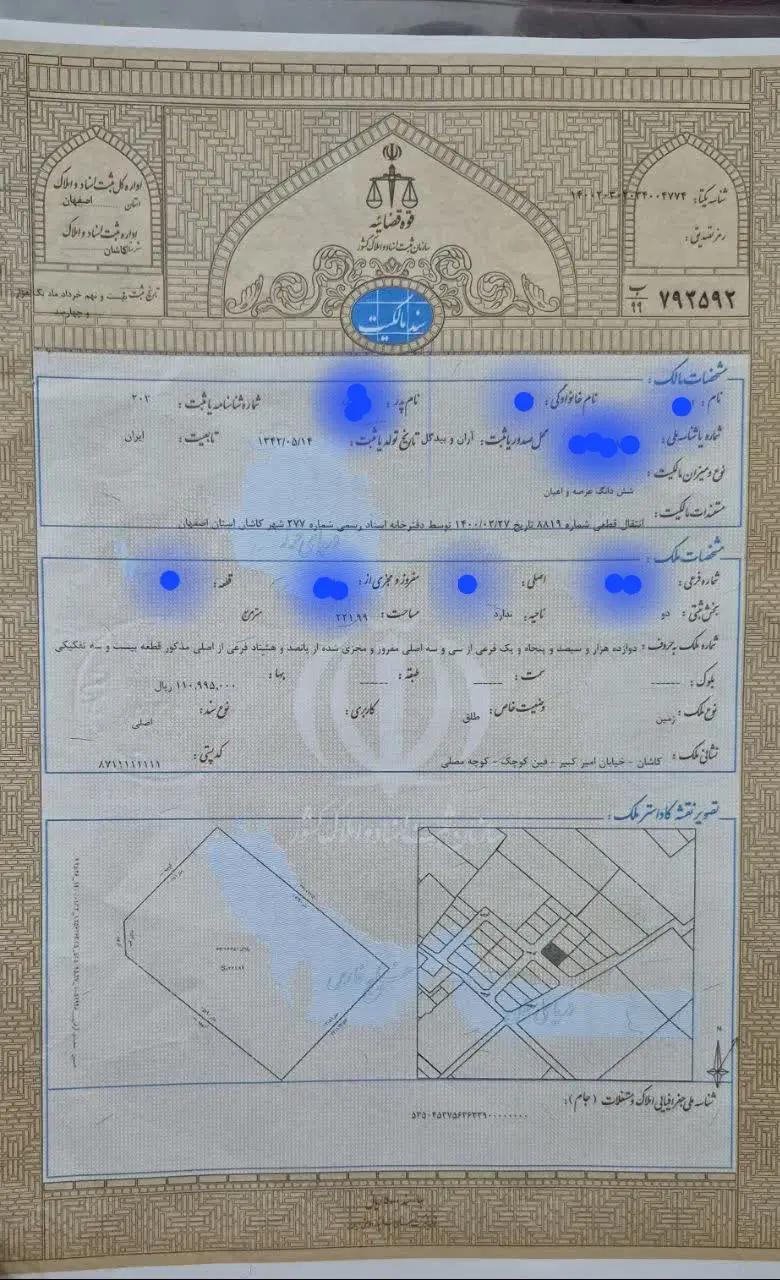 اداره کل ثبت اسناد و املاک
استان اصفهان
اداره ثبت اسناد و املاک
شهرستان کاشان
تاریخ ثبت بیست و نهم خرداد ماه یک هزار
و چهارصد
قوه قضائیه
سازمان ثبت اسناد و املاک کشور
سند مالکیت
شناسه یکتا: ۱۴۰۰۲۰۳۰۲۰۳۴۰۰۴۷۷۴
رمز تصدیق:
ب ۹۹ ۷۹۲۵۹۲
مشخصات مالک:
نام: نام خانوادگی: نام پدر: شماره شناسنامه یا ثبت: ۲۰۲
شماره یا شناسه ملی: محل صدور یا ثبت: آران و بیدگل تاریخ تولد یا ثبت: ۱۳۴۲/۰۵/۱۴ تابعیت: ایران
نوع و میزان مالکیت:
شش دانگ عرصه و اعیان
مستندات مالکیت:
انتقال قطعی شماره ۸۸۱۹ تاریخ ۱۴۰۰/۰۳/۲۷ توسط دفترخانه اسناد رسمی شماره ۲۷۷ شهر کاشان استان اصفهان
مشخصات ملک:
شماره فرعی: اصلی: مفروز و مجزی از: قطعه:
بخش ثبتی: دو ناحیه: ندارد مساحت: ۲۲۱.۹۹ مترمربع
شماره ملک به حروف: دوازده هزار و سیصد و پنجاه و یک فرعی از سی و سه اصلی مفروز و مجزی شده از پانصد و هشتاد فرعی از اصلی مذکور قطعه بیست و سه تفکیکی
بلوک: ------ سمت: ------ طبقه: ------ بها: ۱۱۰,۹۹۵,۰۰۰ ریال
نوع ملک: زمین وضعیت خاص: طلق کاربری: نوع سند: اصلی
نشانی ملک: کاشان - خیابان امیر کبیر - فین کوچک - کوچه مصلی کدپستی: ۸۷۱۱۱۱۲۱۱۱
تصویر نقشه کاداستر ملک:
دریای خزر
خلیج فارس
N
شناسه ملی جغرافیایی املاک و مستغلات (جام):